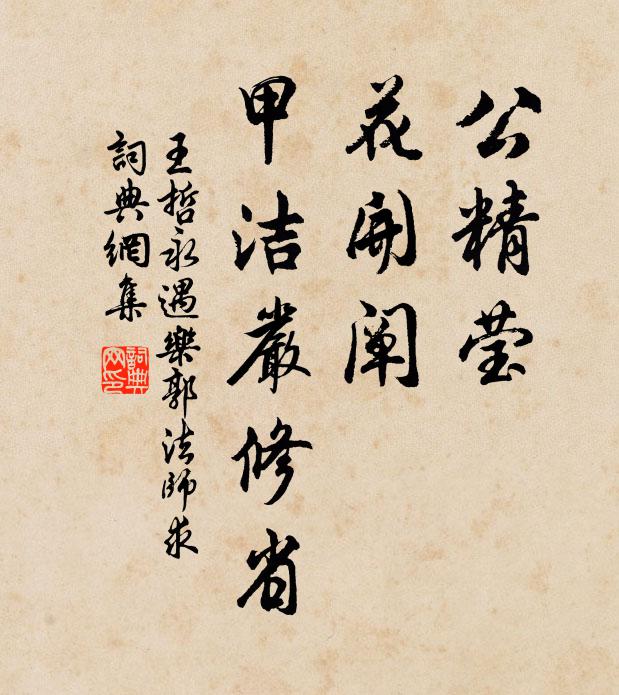 公精莹
花開闡
甲洁嚴修省
王哲永遇樂郭法師求
詞典網集
詞典网印